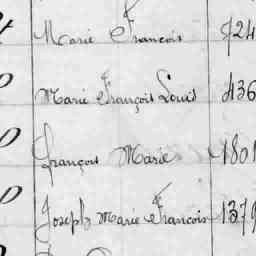 Marie François 424
Marie François Louis 436
François Marie 1801
Joseph Marie François 1379